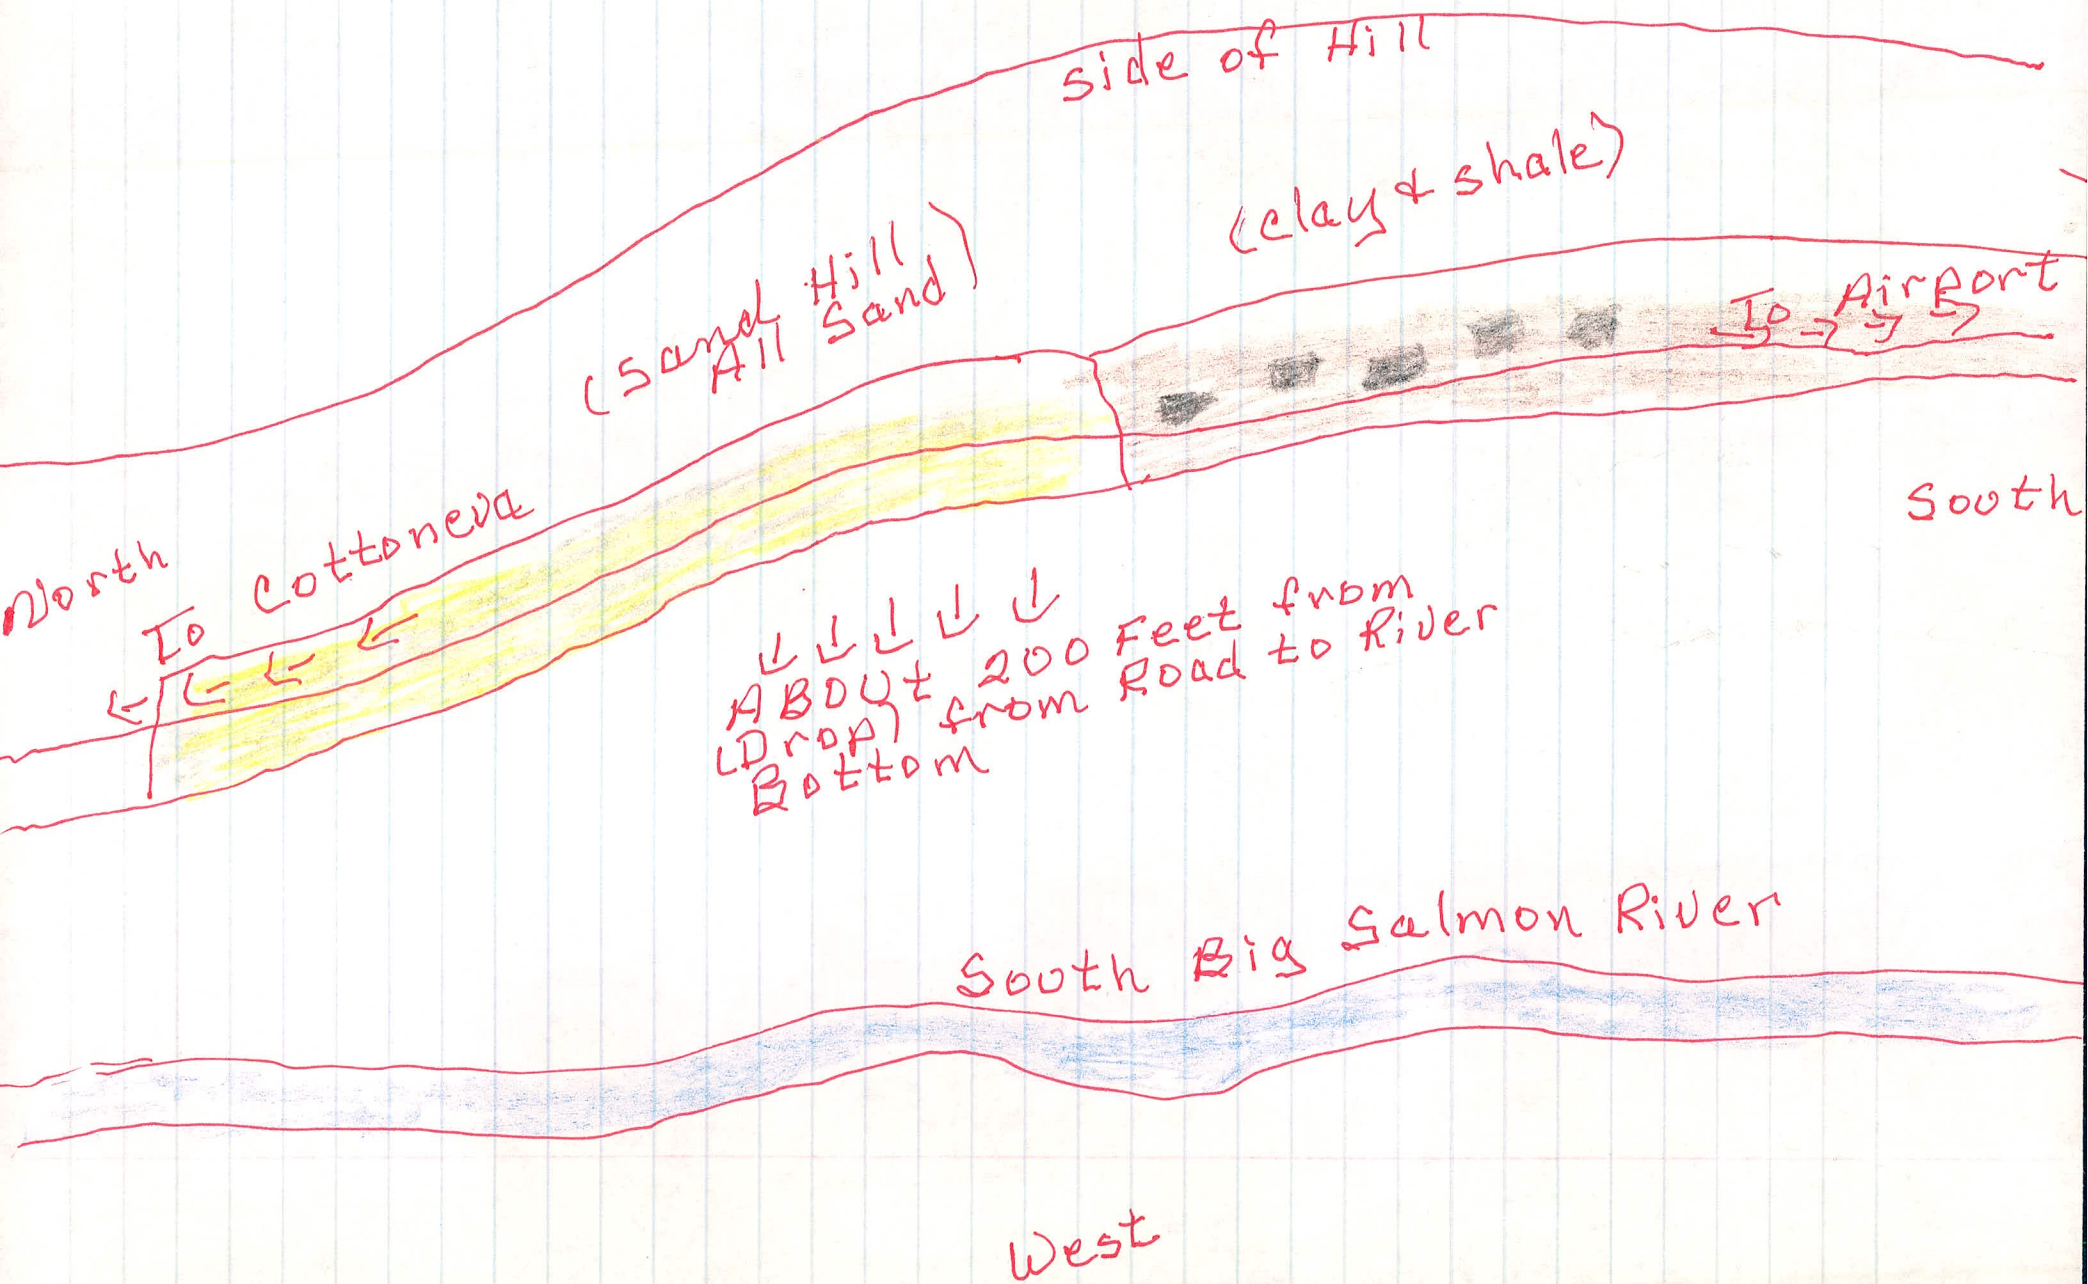 side of Hill
(clay + shale)
(Sand Hill
All Sand)
To Airport
South
North
To Cottoneva
ABOUt 200 Feet from
(Drop) from Road to River
Bottom
South Big Salmon River
West